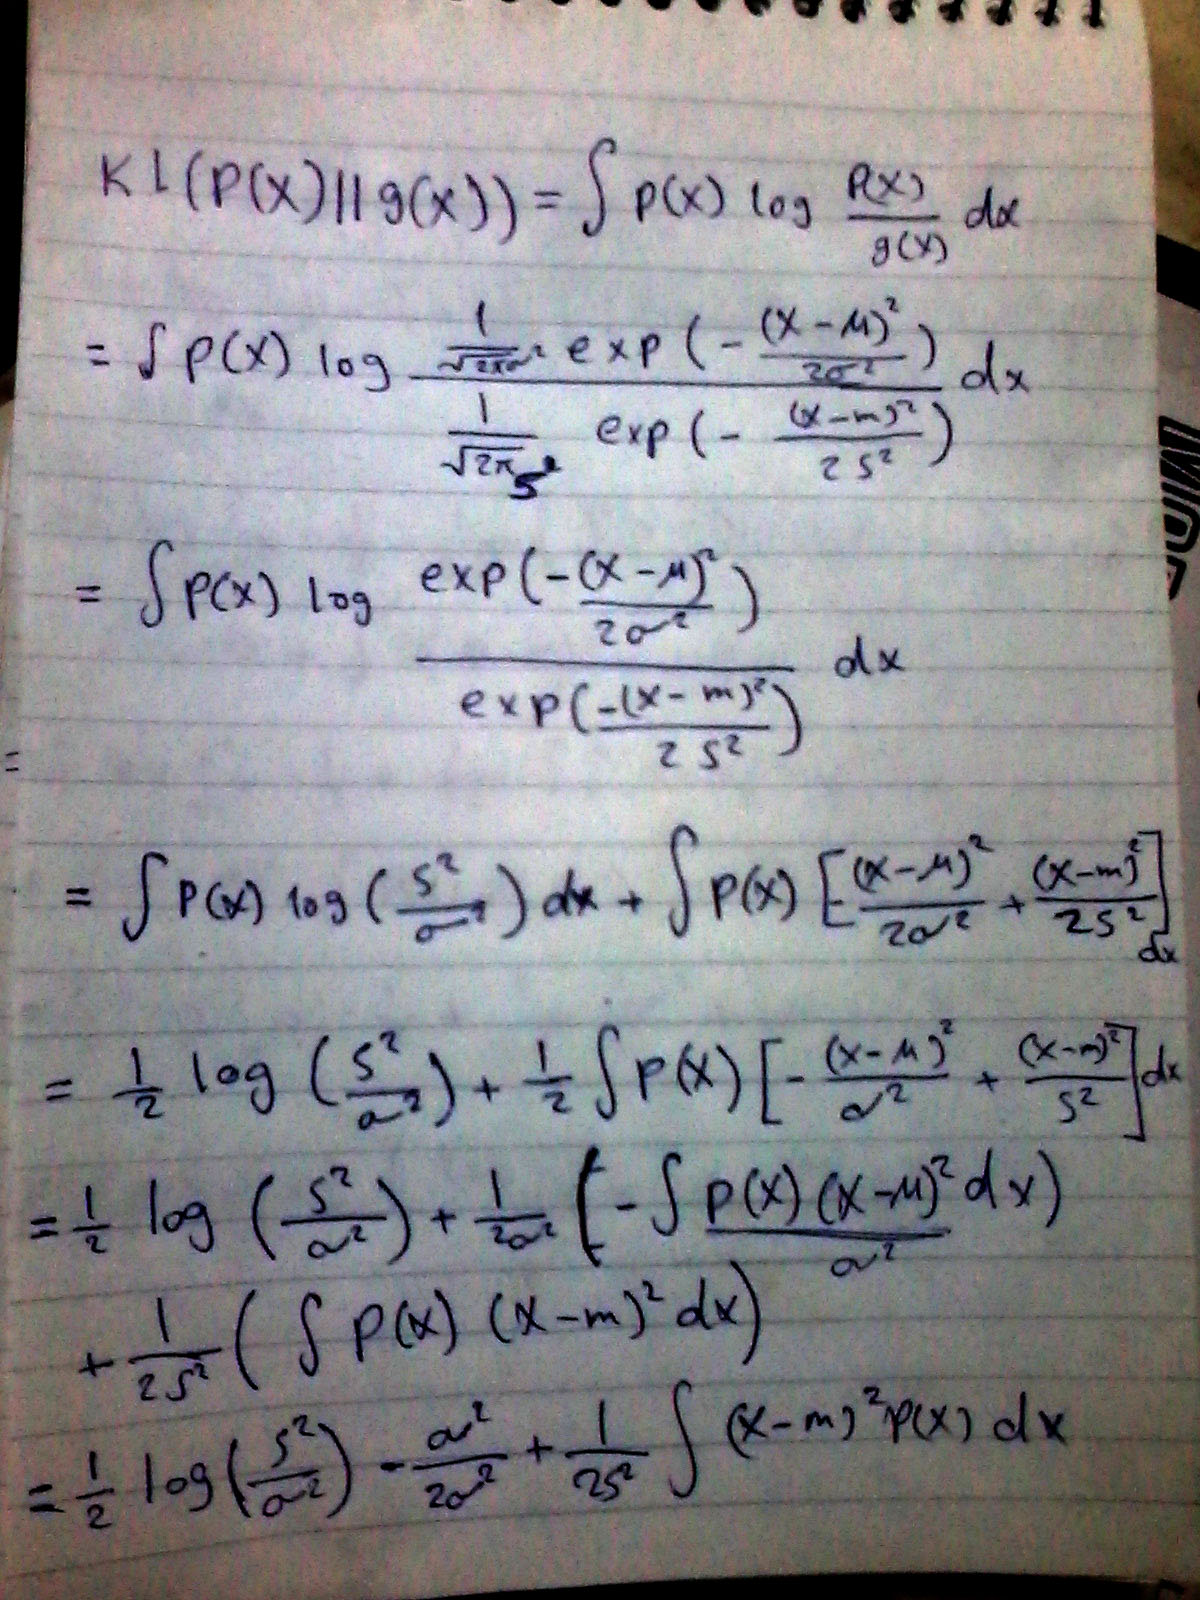 KL(P(x)||g(x)) = ∫ p(x) log P(x)/g(x) dx
= ∫ p(x) log (1/√(2πσ²) exp(-(x-μ)²/2σ²)) / (1/√(2πs²) exp(-(x-m)²/2s²)) dx
= ∫ p(x) log exp(-(x-μ)²/2σ²) / exp(-(x-m)²/2s²) dx
=
= ∫ p(x) log(s²/σ²) dx + ∫ p(x) [-(x-μ)²/2σ² + (x-m)²/2s²] dx
= 1/2 log(s²/σ²) + 1/2 ∫ p(x) [-(x-μ)²/σ² + (x-m)²/s²] dx
= 1/2 log(s²/σ²) + 1/2σ² (-∫ p(x)(x-μ)²/σ² dx)
+ 1/2s² (∫ p(x) (x-m)² dx)
= 1/2 log(s²/σ²) - σ²/2σ² + 1/2s² ∫ (x-m)² p(x) dx